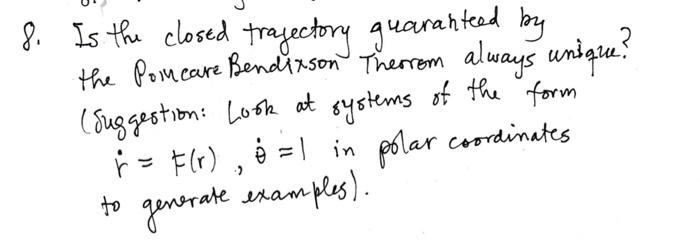 8. Is the closed trajectory guaranteed by
the Poincare Bendixson Theorem always unique?
(Suggestion: Look at systems of the form
ṙ = F(r), θ̇ = 1 in polar coordinates
to generate examples).